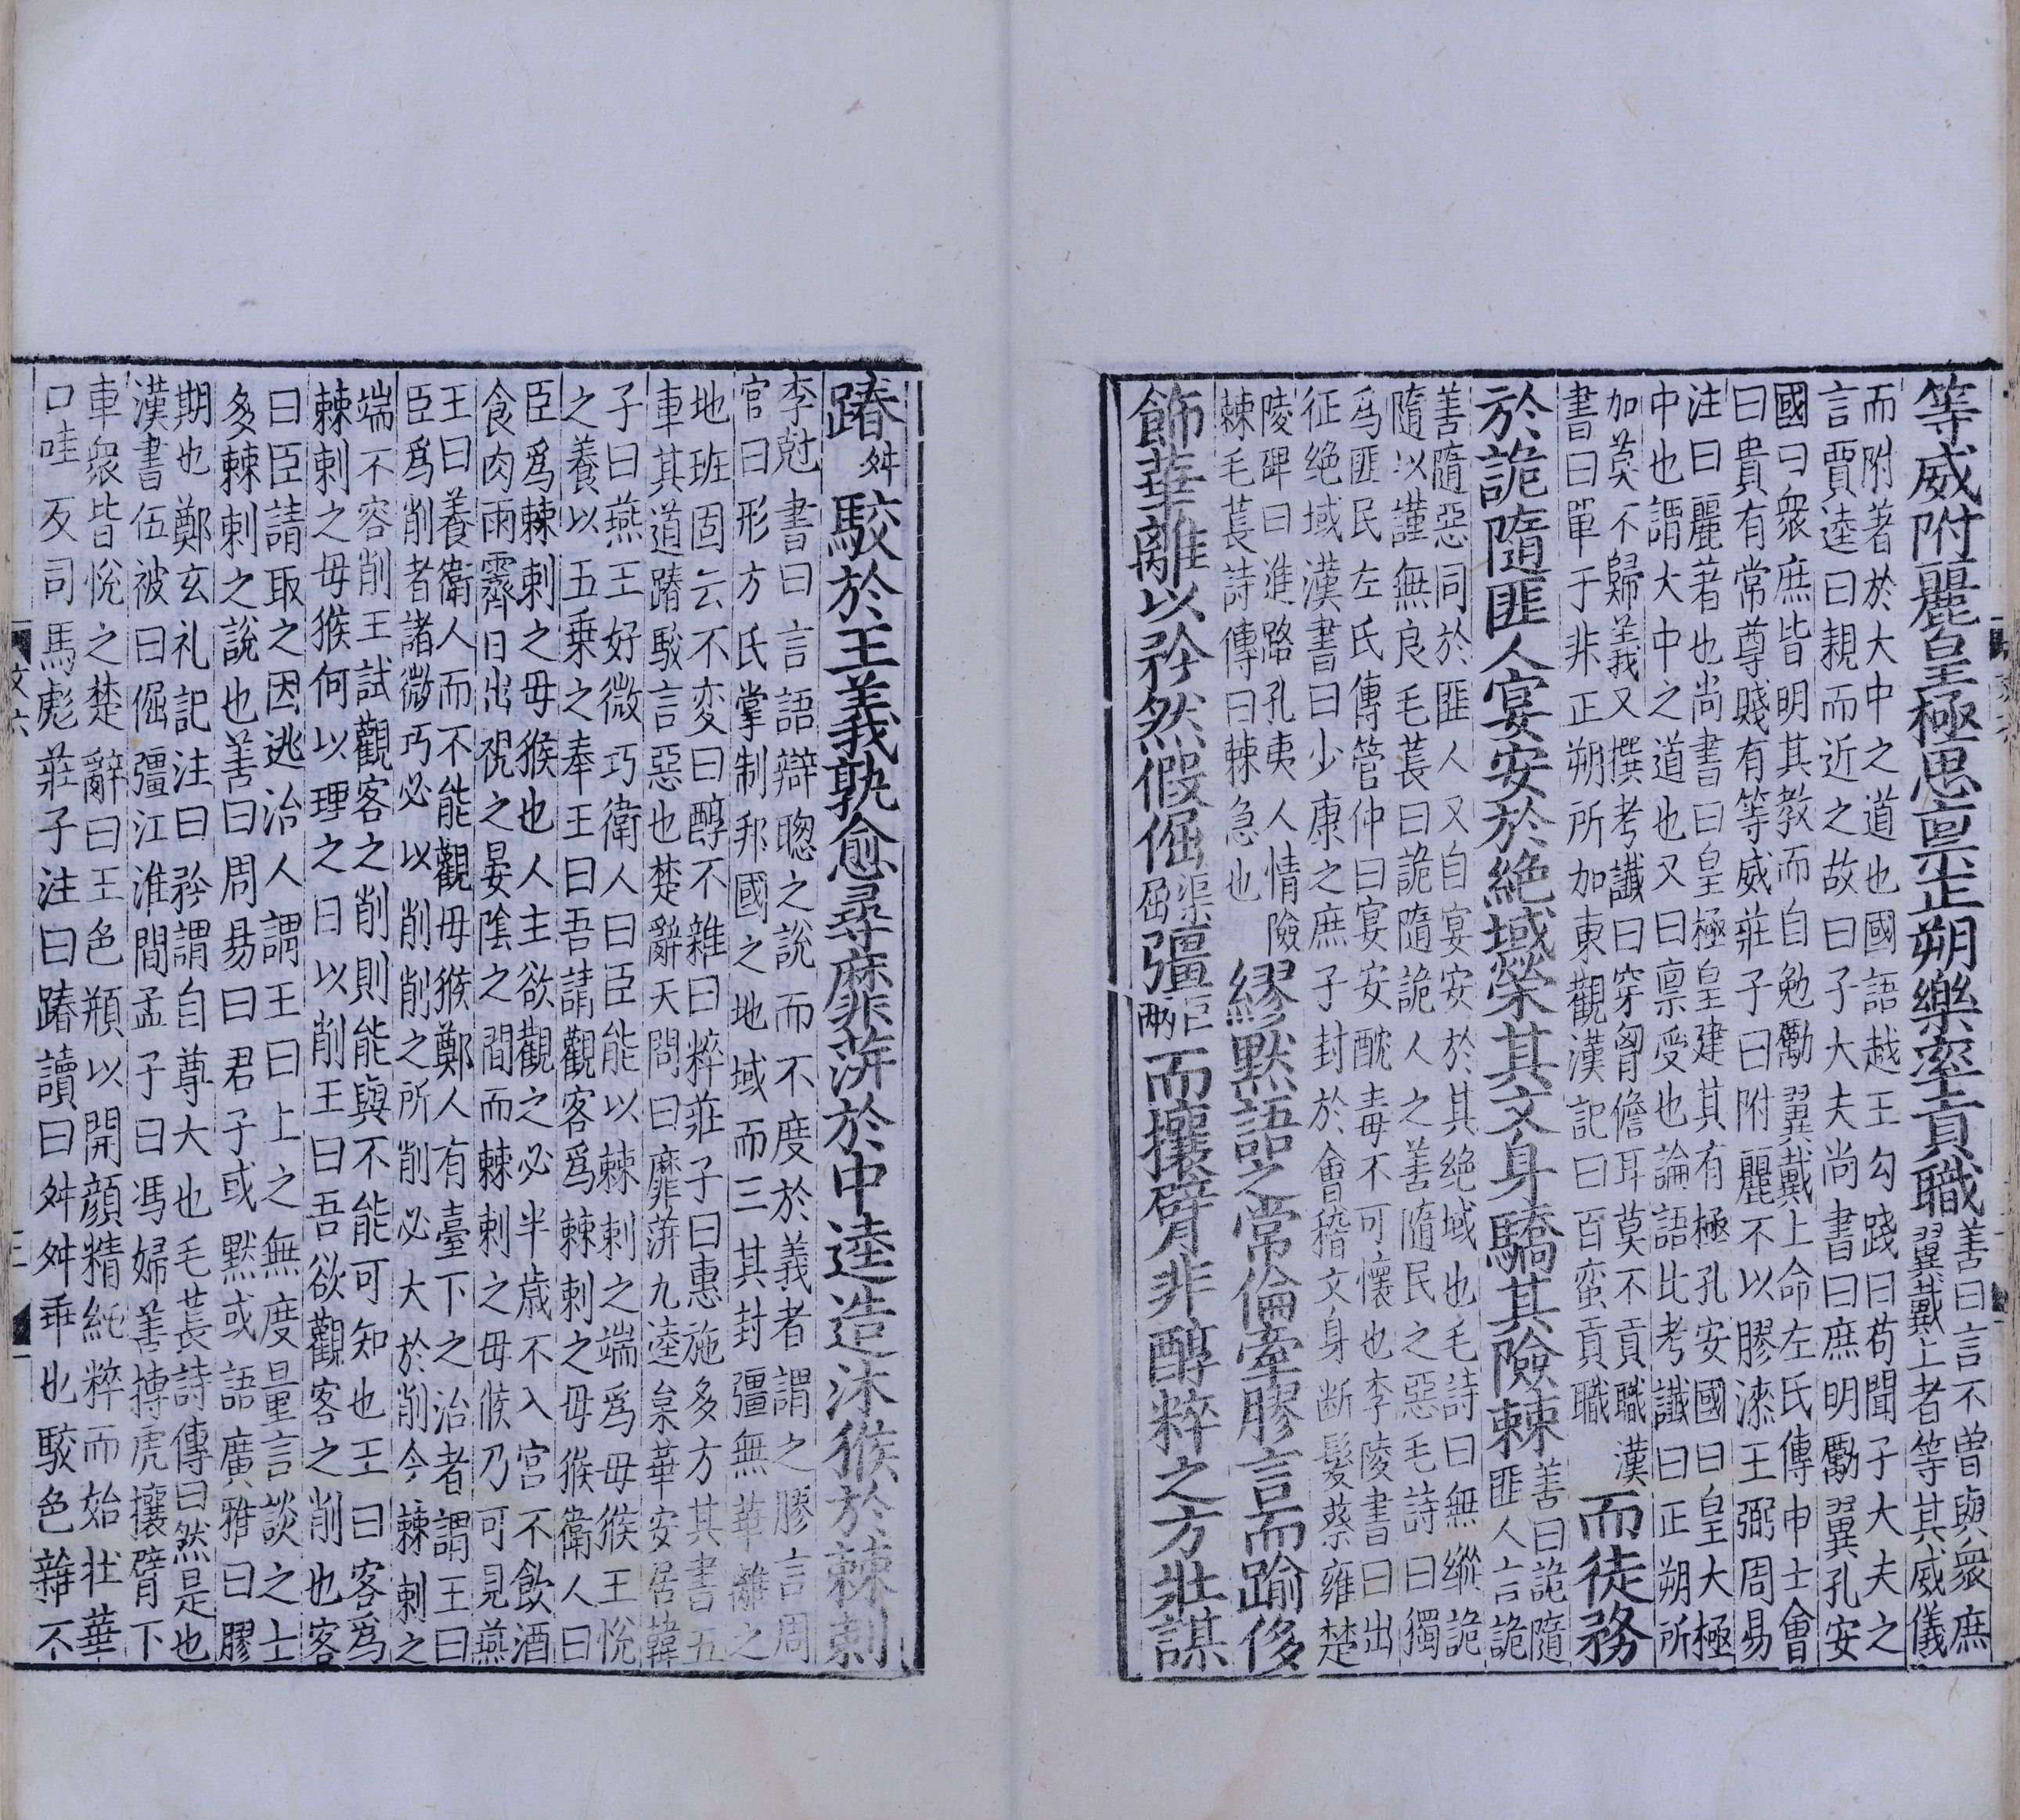 等威附麗皇極思禀正朔樂率貢職善曰言不曾與衆庶
翼戴上者等其威儀
而附著於大中之道也國語越王勾踐曰苟聞子大夫之
言賈逵曰親而近之故曰子大夫尚書曰庶明勵翼孔安
國曰衆庶皆明其教而自勉勵翼戴上命左氏傳申士會
曰貴有常尊賤有等威莊子曰附麗不以膠漆王弼周易
注曰麗著也尚書曰皇極皇建其有極孔安國曰皇大極
中也謂大中之道也又曰禀受也論語比考讖曰正朔所
加莫不歸義又撰考讖曰穿胷儋耳莫不貢職漢
書曰單于非正朔所加東觀漢記曰百蛮貢職
而徒務
於詭隨匪人宴安於絶域榮其文身驕其險棘善曰詭隨
匪人言詭
善隨惡同於匪人又自宴安於其绝域也毛詩曰無縱詭
隨以謹無良毛萇曰詭隨詭人之善隨民之惡毛詩曰獨
爲匪民左氏傳管仲曰宴安酖毒不可懷也李陵書曰出
征绝域漢書曰少康之庶子封於會稽文身断髮蔡雍楚
陵碑曰進路孔夷人情險
棘毛萇詩傳曰棘急也
繆黙語之常倫牽膠言而踰侈
飾華離以矜然假倔渠屈彊巨兩而攘臂非醇粹之方壯謀
踳舛駮於王義孰愈尋靡蓱於中逵造沐猴於棘刺
李尅書曰言語辯聦之說而不度於義者謂之膠言周
官曰形方氏掌制邦國之地域而三其封疆無華離之
地班固云不変曰醇不雜曰粹莊子曰惠施多方其書五
車其道踳駮言惡也楚辭天問曰靡蓱九逵枲華安居韓
子曰燕王好微巧衛人曰臣能以棘刺之端爲毋猴王悅
之養以五乗之奉王曰吾請觀客爲棘刺之毋猴衛人曰
臣爲棘刺之毋猴也人主欲觀之必半歳不入宫不飲酒
食肉雨霽日出視之晏隂之間而棘刺之毋猴乃可見燕
王曰養衛人而不能觀毋猴鄭人有臺下之治者謂王曰
臣爲削者諸微巧必以削削之所削必大於削今棘刺之
端不容削王試觀客之削則能與不能可知也王曰客爲
棘刺之毋猴何以理之曰以削王曰吾欲觀客之削也客
曰臣請取之因逃治人謂王曰上之無度量言談之士
多棘刺之說也善曰周易曰君子或黙或語廣雅曰膠
期也鄭玄礼記注曰矜謂自尊大也毛萇詩傳曰然是也
漢書伍被曰倔彊江淮間孟子曰馮婦善摶虎攘臂下
車衆皆悅之楚辭曰王色頩以開顔精純粹而始壮華
口哇反司馬彪莊子注曰踳讀曰舛舛乖也駮色雜不